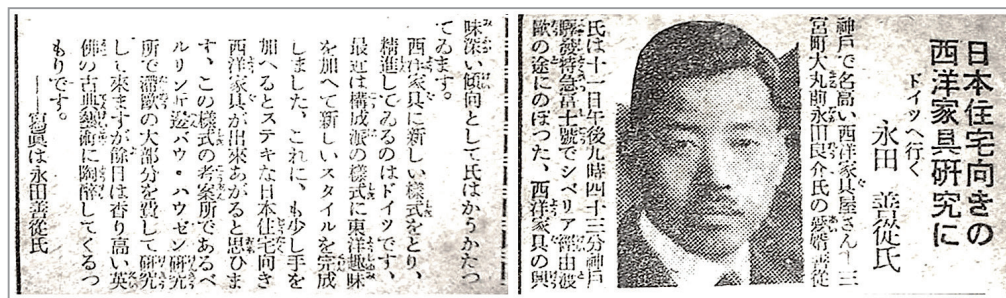 日本住宅向きの
西洋家具研究に
ドイツへ行く
永田善從氏
神戸で名高い西洋家具屋さん三
宮町大丸前永田良介氏の愛婿善從
氏は十一日午後九時四十三分神戸
驛發特急富士號でシベリア經由渡
歐の途にのぼつた、西洋家具の興
味深い傾向として氏はかうかたつ
てゐます。
西洋家具に新しい樣式をとり、
精進してゐるのはドイツです、
最近は構成派の樣式に東洋趣味
を加へて新しいスタイルを完成
しました、これに、も少し手を
加へるとステキな日本住宅向き
西洋家具が出來あがると思ひま
す、この樣式の考案所であるベ
ルリン近邊バウ・ハウゼン研究
所で滯歐の大部分を費して研究
して來ますが餘日は香り高い英
佛の古典藝術に陶醉してくるつ
もりです。
――寫眞は永田善從氏